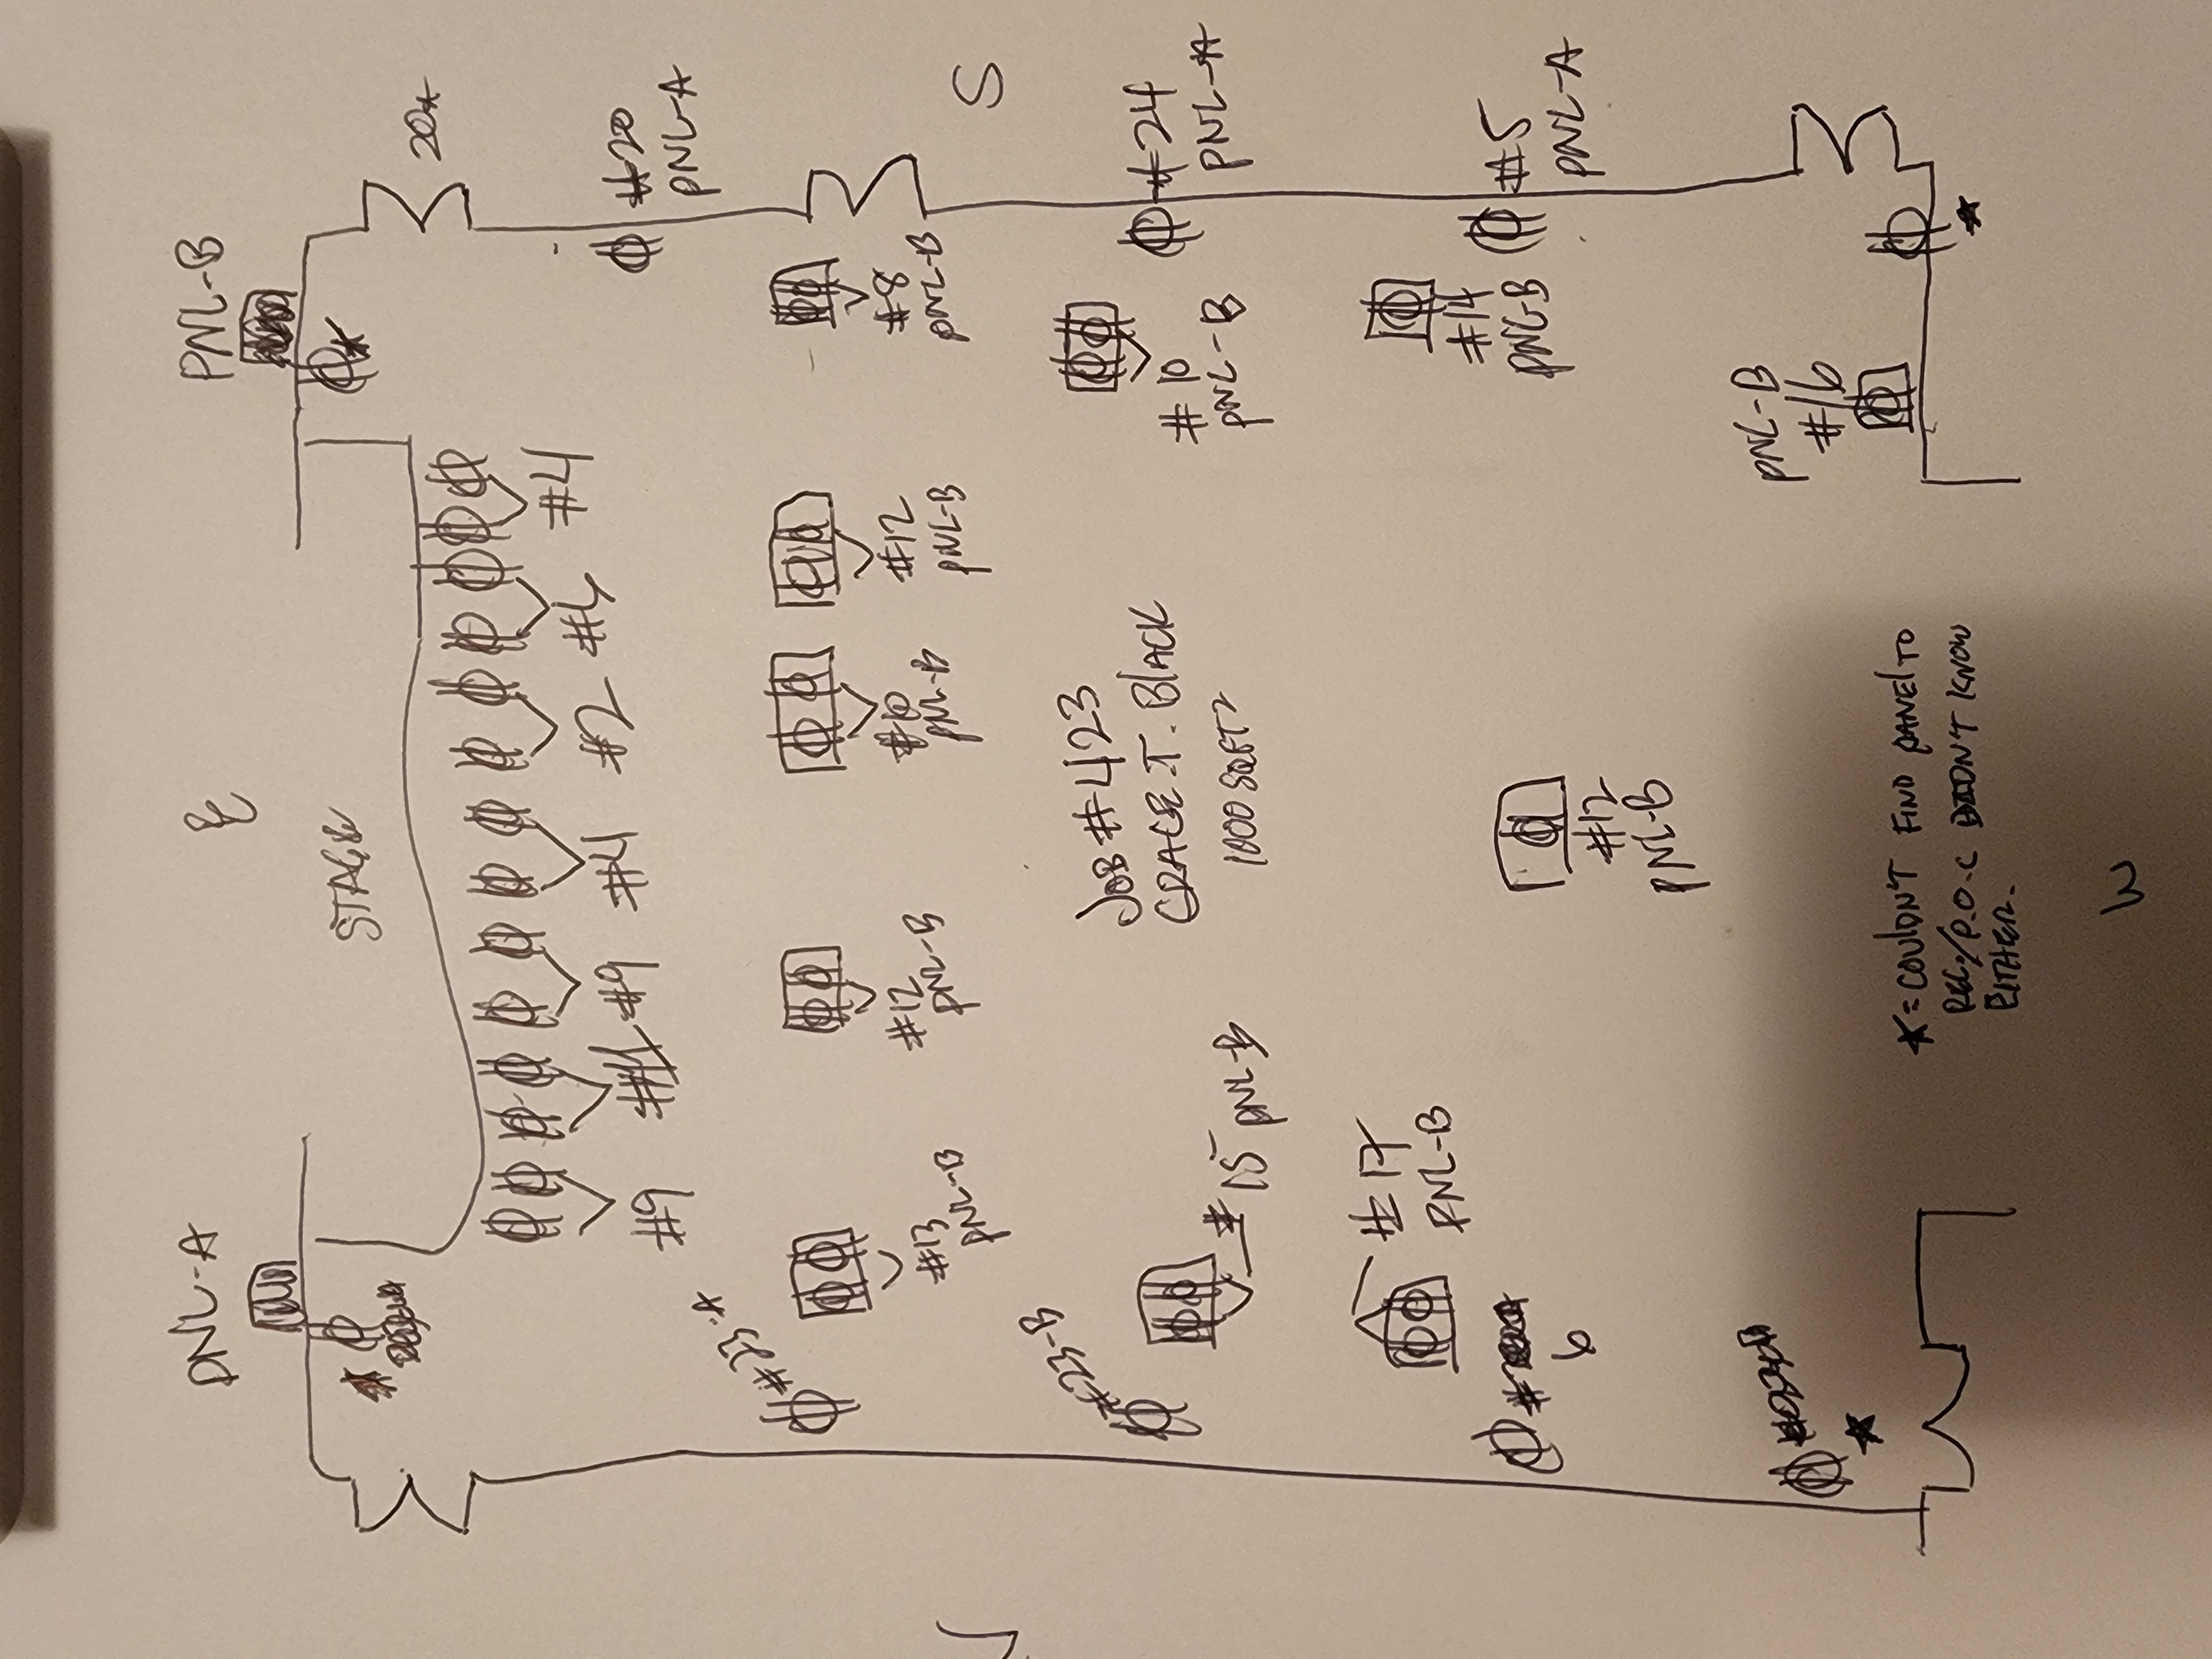 PNL-A
PNL-B
E
STAGE
20A
#9
#9
#4
#2
#4
#20
PNL-A
S
#24
PNL-A
#5
PNL-A
#23-A
#13
PNL-B
#12
PNL-B
#10
PNL-B
#12
PNL-B
#8
PNL-B
#23-B
#15 PNL-B
JOB # 423
GRACE T. BLACK
1000 SQFT2
#10
PNL-B
#17
PNL-B
#14
PNL-B
#
6
#12
PNL-B
PNL-B
#16
* = COULDN'T FIND PANEL TO
REC/P.O.C DIDNT KNOW
EITHER.
W